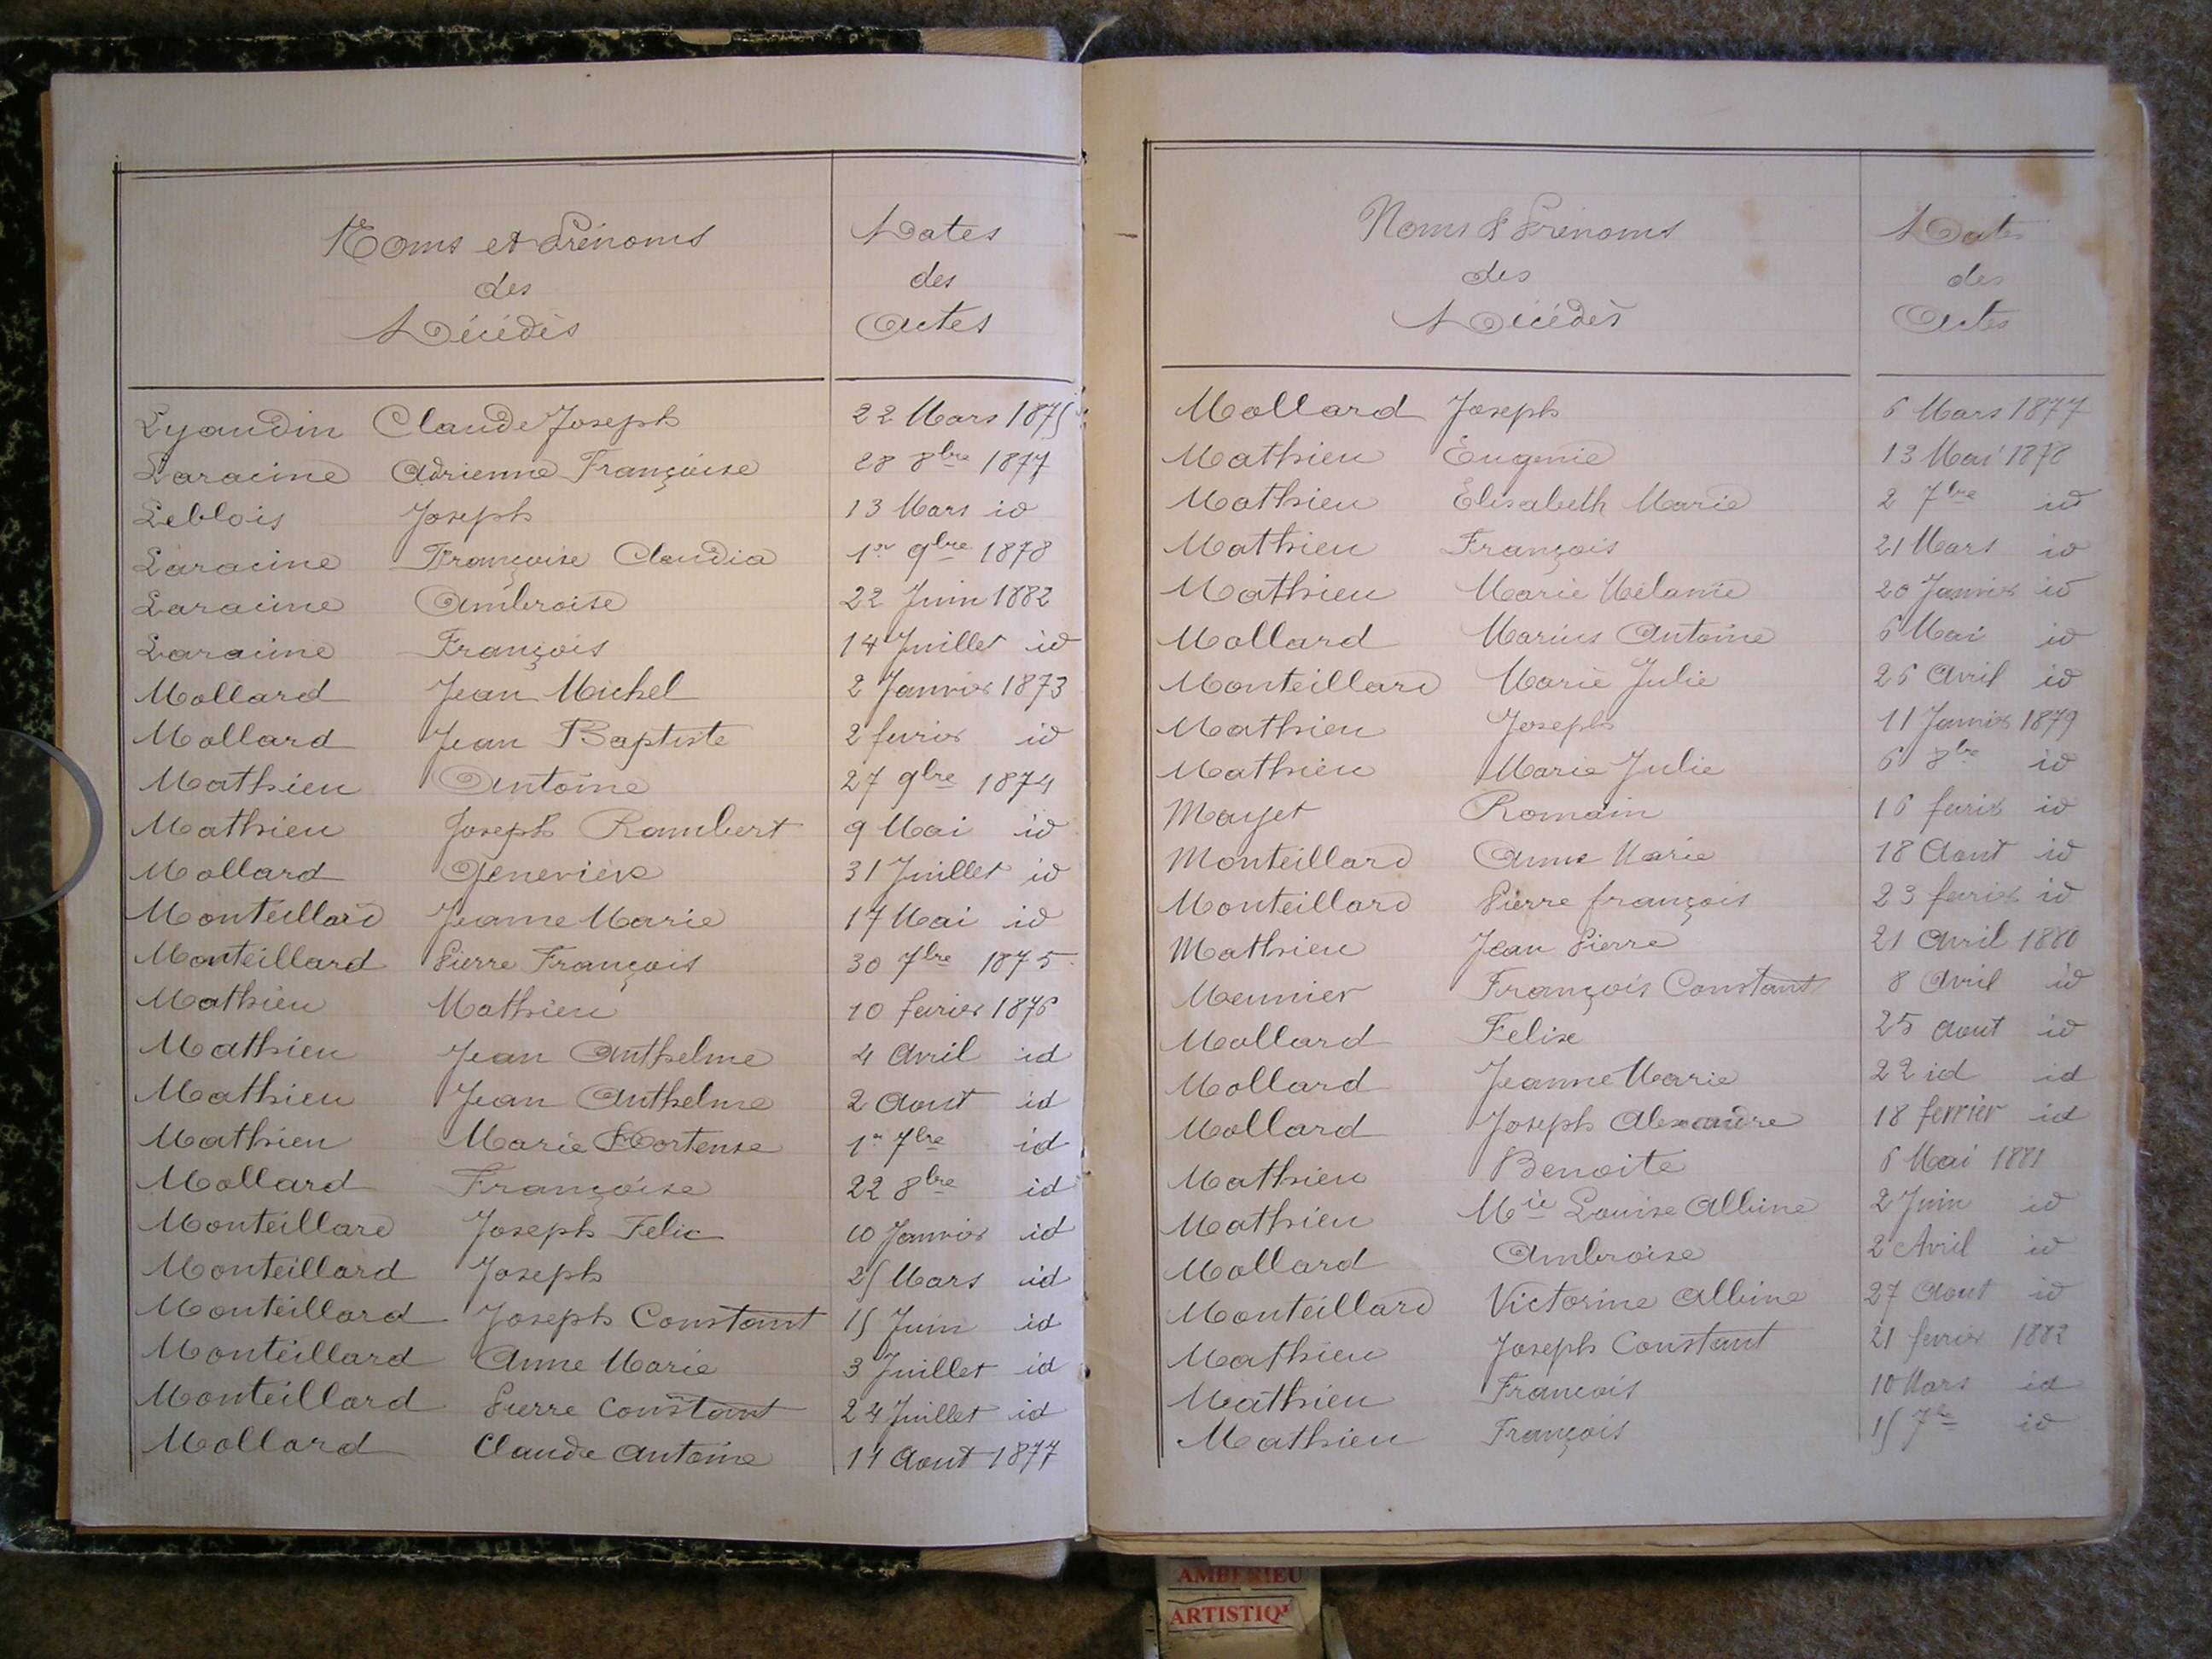 Noms et Prénoms
des
Décédés
Dates
des
Actes
Lyaudin Claude Joseph 22 Mars 1875
Laracine Adrienne Françoise 28 8bre 1877
Leblois Joseph 13 Mars id
Laracine Françoise Claudia 1er 9bre 1878
Laracine Ambroise 22 Juin 1882
Laracine François 14 Juillet id
Mollard Jean Michel 2 Janvier 1873
Mollard Jean Baptiste 2 fevrier id
Mathieu Antoine 27 9bre 1874
Mathieu Joseph Rambert 9 Mai id
Mollard Geneviève 31 Juillet id
Monteillard Jeanne Marie 17 Mai id
Monteillard Pierre François 30 7bre 1875
Mathieu Mathieu 10 fevrier 1876
Mathieu Jean Anthelme 4 Avril id
Mathieu Jean Anthelme 2 Aout id
Mathieu Marie Hortense 1er 7bre id
Mollard Françoise 22 8bre id
Monteillard Joseph Felix 10 Janvier id
Monteillard Joseph 25 Mars id
Monteillard Joseph Constant 15 Juin id
Monteillard Anne Marie 3 Juillet id
Monteillard Pierre Constant 24 Juillet id
Mollard Claude Antoine 14 Aout 1877
Noms & Prénoms
des
Décédés
Dates
des
Actes
Mollard Joseph 6 Mars 1877
Mathieu Eugenie 13 Mai 1878
Mathieu Elisabeth Marie 2 7bre id
Mathieu François 21 Mars id
Mathieu Marie Mélanie 20 Janvier id
Mollard Marius Antoine 6 Mai id
Monteillard Marie Julie 26 Avril id
Mathieu Joseph 11 Janvier 1879
Mathieu Marie Julie 6 8bre id
Mayet Romain 16 fevrier id
Monteillard Anne Marie 18 Aout id
Monteillard Pierre françois 23 fevrier id
Mathieu Jean Pierre 21 Avril 1880
Meunier François Constant 8 Avril id
Mollard Felix 25 aout id
Mollard Jeanne Marie 22 id id
Mollard Joseph Alexandre 18 fevrier id
Mathieu Benoite 6 Mai 1881
Mathieu Mie Louise Albine 2 Juin id
Mollard Ambroise 2 Avril id
Monteillard Victorine Albine 27 Aout id
Mathieu Joseph Constant 21 fevrier 1882
Mathieu Francois 10 Mars id
Mathieu François 15 7bre id
AMBERIEU
ARTISTIQ